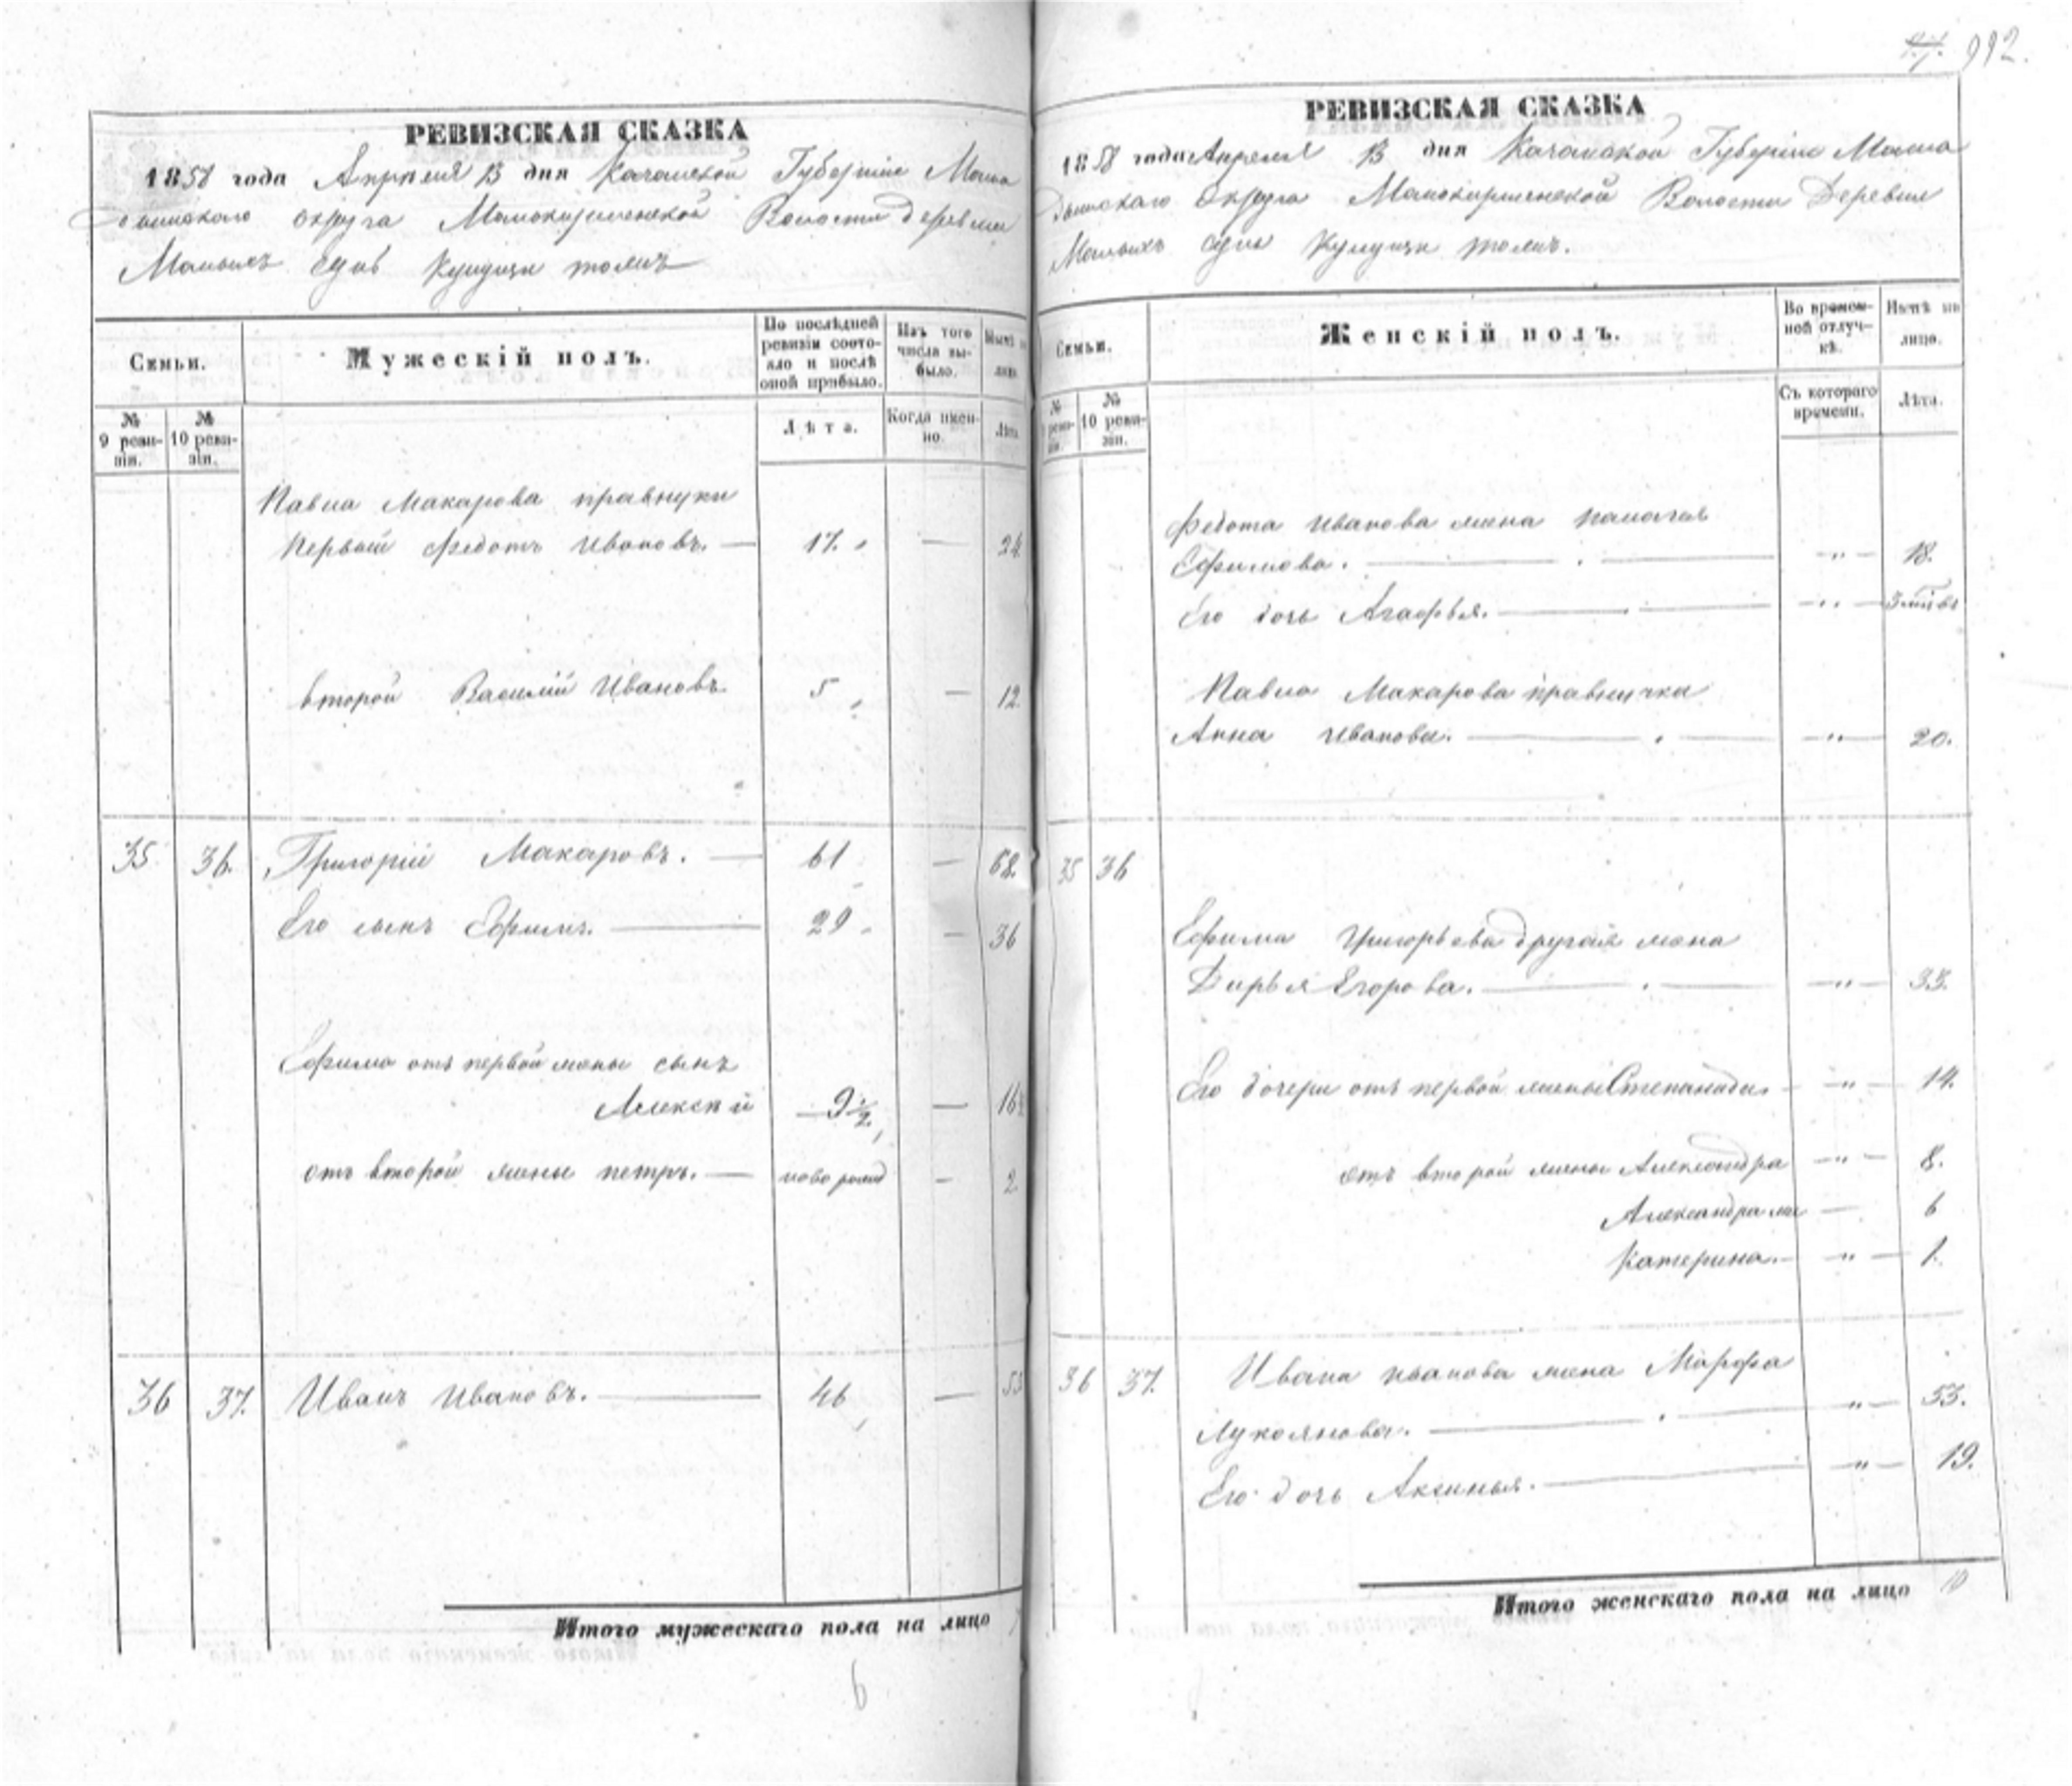 РЕВИЗСКАЯ СКАЗКА
1858 года Апреля 13 дня Казанской Губернии Мама
дышскаго округа Малокирменской Волости деревни
Малыхъ Сунь
Семьи.
Мужескій полъ.
По послѣдней ревизіи состояло и послѣ оной прибыло.
Изъ того числа выбыло.
Нынѣ на лицо.
№ 9 ревизіи.
№ 10 ревизіи.
Лѣта.
Когда именно.
Лѣта
Павла Макарова правнуки
Первый Федотъ Ивановъ. 17. 24
второй Василій Ивановъ 5 12
35 36. Григорій Макаровъ. 61 68.
Его сынъ Ефимъ. 29 36
Ефима отъ первой жены сынъ
Алексѣй 9 1/2 16
отъ второй жены петръ. ново рожд 2
36 37. Иванъ Ивановъ. 46 53
Итого мужескаго пола на лицо 7
6
992.
РЕВИЗСКАЯ СКАЗКА
1858 года Апреля 13 дня Казанской Губерніи Мама
дышскаго Округа Малокирменской Волости Деревни
Малыхъ Сунь
Семьи.
Женскій полъ.
Во временной отлучкѣ.
Нынѣ на лицо.
№ 9 ревизіи.
№ 10 ревизіи.
Съ котораго времени.
Лѣта.
Федота Иванова жена Палагея
Ефимова. 18.
Его дочь Агафья. 3 мцвъ
Павла Макарова правнучка
Анна Иванова. 20.
35 36
Ефима Григорьева другая жена
Дарья Егорова. 33.
Его дочери отъ первой жены Степанида. 14.
отъ второй жены Александра 8.
Александра же 6
Катерина. 1.
36 37. Ивана Иванова жена Марфа
Лукоянова. 53.
Его дочь Аксинья. 19.
Итого женскаго пола на лицо 10